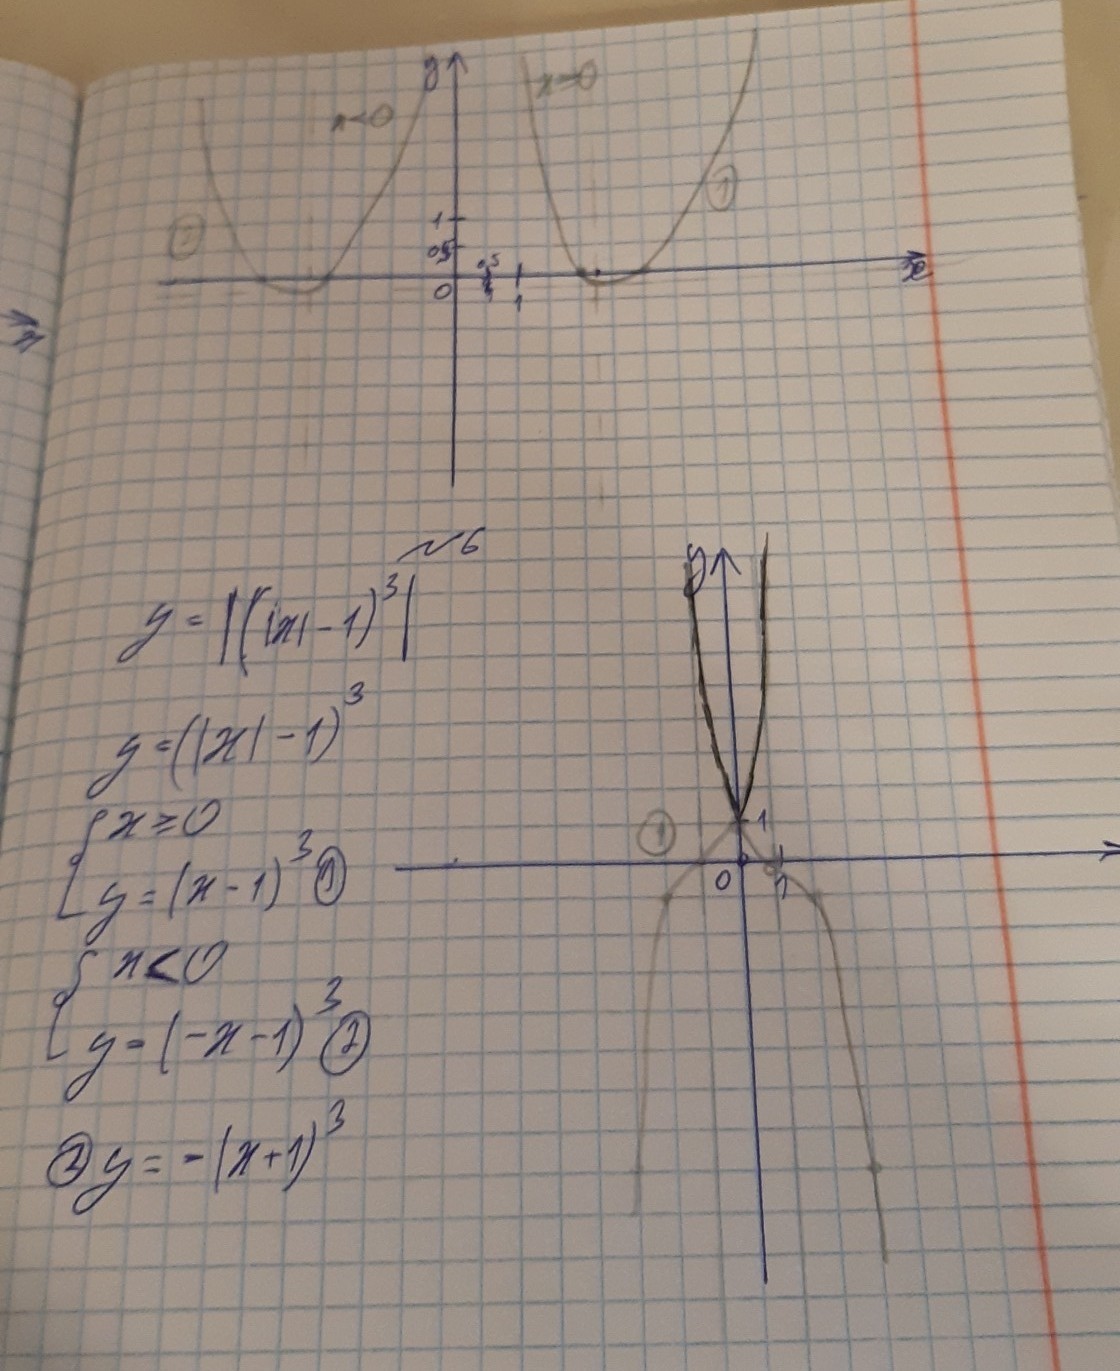 y
x<0
x≥0
②
①
1
0,5
0,5
0
1
x
x
~6
y = |(|x| - 1)³|
y = (|x| - 1)³
{ x ≥ 0
y = (x - 1)³ ①
{ x < 0
y = (-x - 1)³ ②
② y = -(x+1)³
y
1
①
0
1